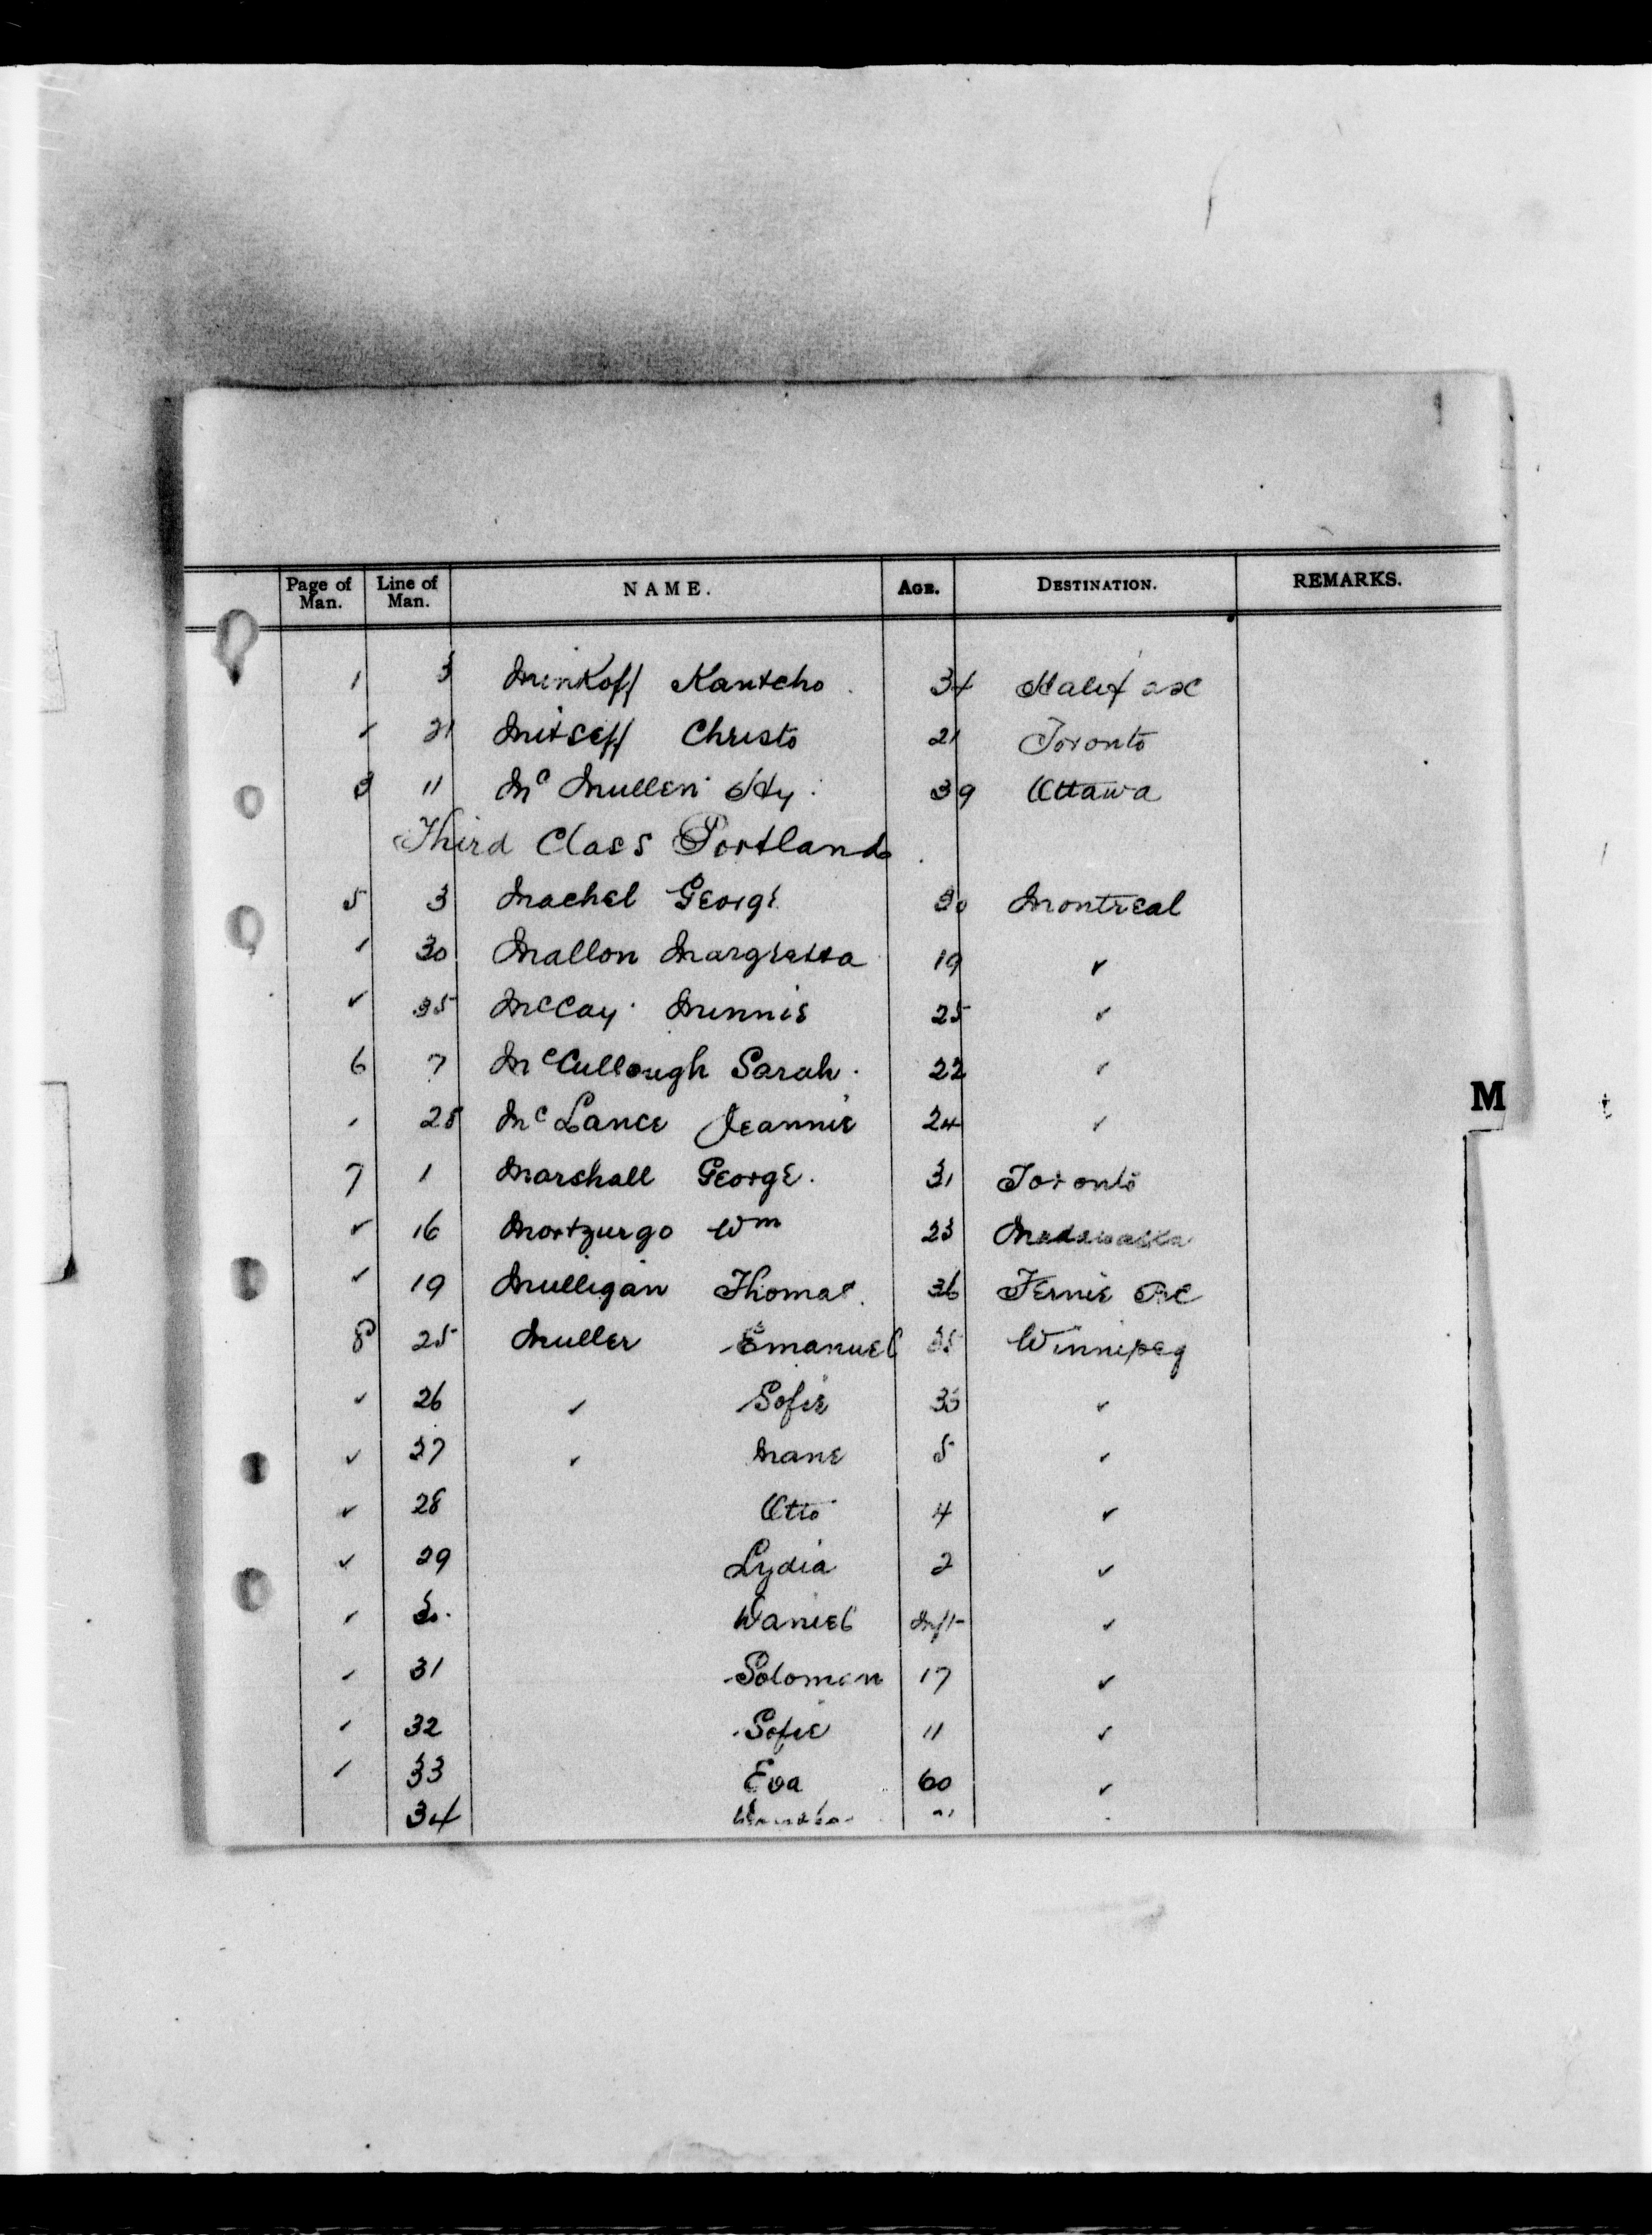 Page of Man. Line of Man. NAME. AGE. DESTINATION. REMARKS.
1 3 Minkoff Kantcho 34 Halifax
✓ 21 Mitseff Christo 21 Toronto
3 11 Mc Mullen Hy. 39 Ottawa
Third Class Portland
5 3 Machel George 30 Montreal
✓ 30 Mallon Margretta 19 ✓
✓ 35 McCay Minnie 25 ✓
6 7 McCullough Sarah 22 ✓
✓ 28 Mc Lance Jeannie 24 ✓
M
7 1 Marshall George. 31 Toronto
✓ 16 Mortzurgo Wm 23 Madawaska
✓ 19 Mulligan Thomas. 36 Fernie BC
8 25 Muller Emanuel 35 Winnipeg
✓ 26 ✓ Sofie 33 ✓
✓ 27 ✓ Marie 5 ✓
✓ 28 Otto 4 ✓
✓ 29 Lydia 2 ✓
✓ 30 Daniel Inft ✓
✓ 31 Solomon 17 ✓
✓ 32 Sofie 11 ✓
✓ 33 Eva 60 ✓
34